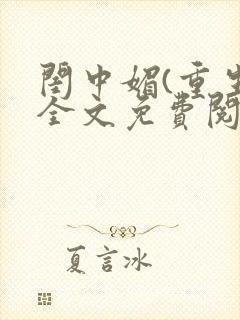 閨中媚(重生
全文免費閱
夏言冰